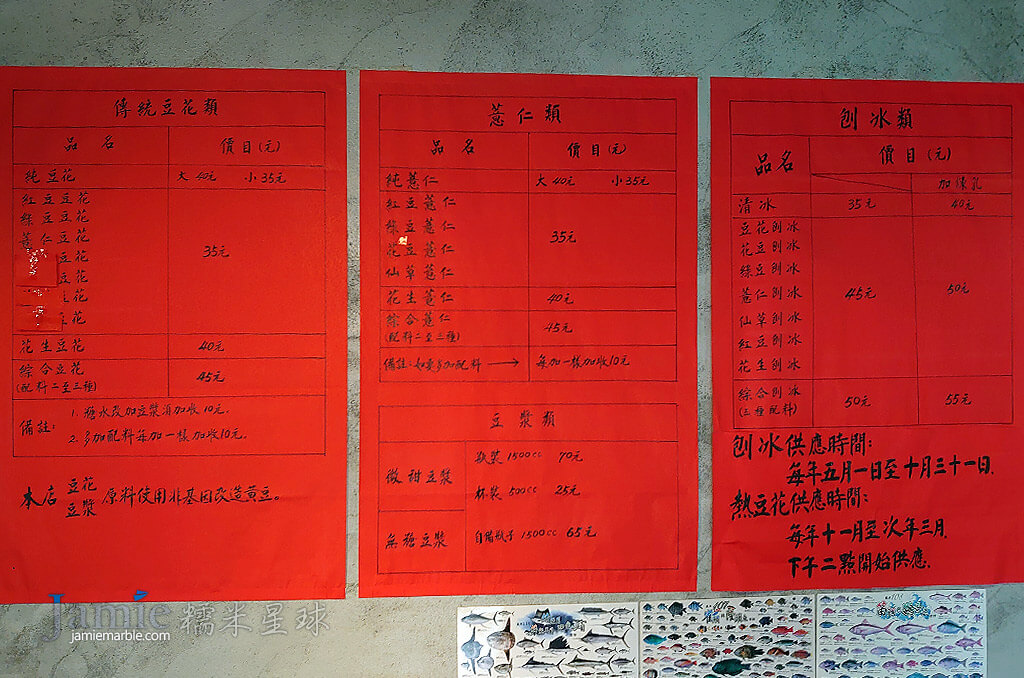 傳統豆花類
品名 價目(元)
純豆花 大40元 小35元
紅豆豆花
綠豆豆花
薏仁豆花
豆花
豆花
花
花
35元
花生豆花 40元
綜合豆花
(配料二至三種)
45元
備註:
1. 糖水改加豆漿須加收10元.
2. 多加配料每加一樣加收10元.
本店 豆花
豆漿 原料使用非基因改造黃豆。
薏仁類
品名 價目(元)
純薏仁 大40元 小35元
紅豆薏仁
綠豆薏仁
花豆薏仁
仙草薏仁
35元
花生薏仁 40元
綜合薏仁
(配料二至三種)
45元
備註:如要多加配料 → 每加一樣加收10元
豆漿類
微甜豆漿
瓶裝1500cc 70元
杯裝500cc 25元
無糖豆漿
自備瓶子1500cc 65元
刨冰類
品名 價目(元)
加煉乳
清冰 35元 40元
豆花刨冰
花豆刨冰
綠豆刨冰
薏仁刨冰
仙草刨冰
紅豆刨冰
花生刨冰
45元 50元
綜合刨冰
(三種配料)
50元 55元
刨冰供應時間:
每年五月一日至十月三十一日.
熱豆花供應時間:
每年十一月至次年三月.
下午二點開始供應.
Jamie 糯米星球
jamiemarble.com